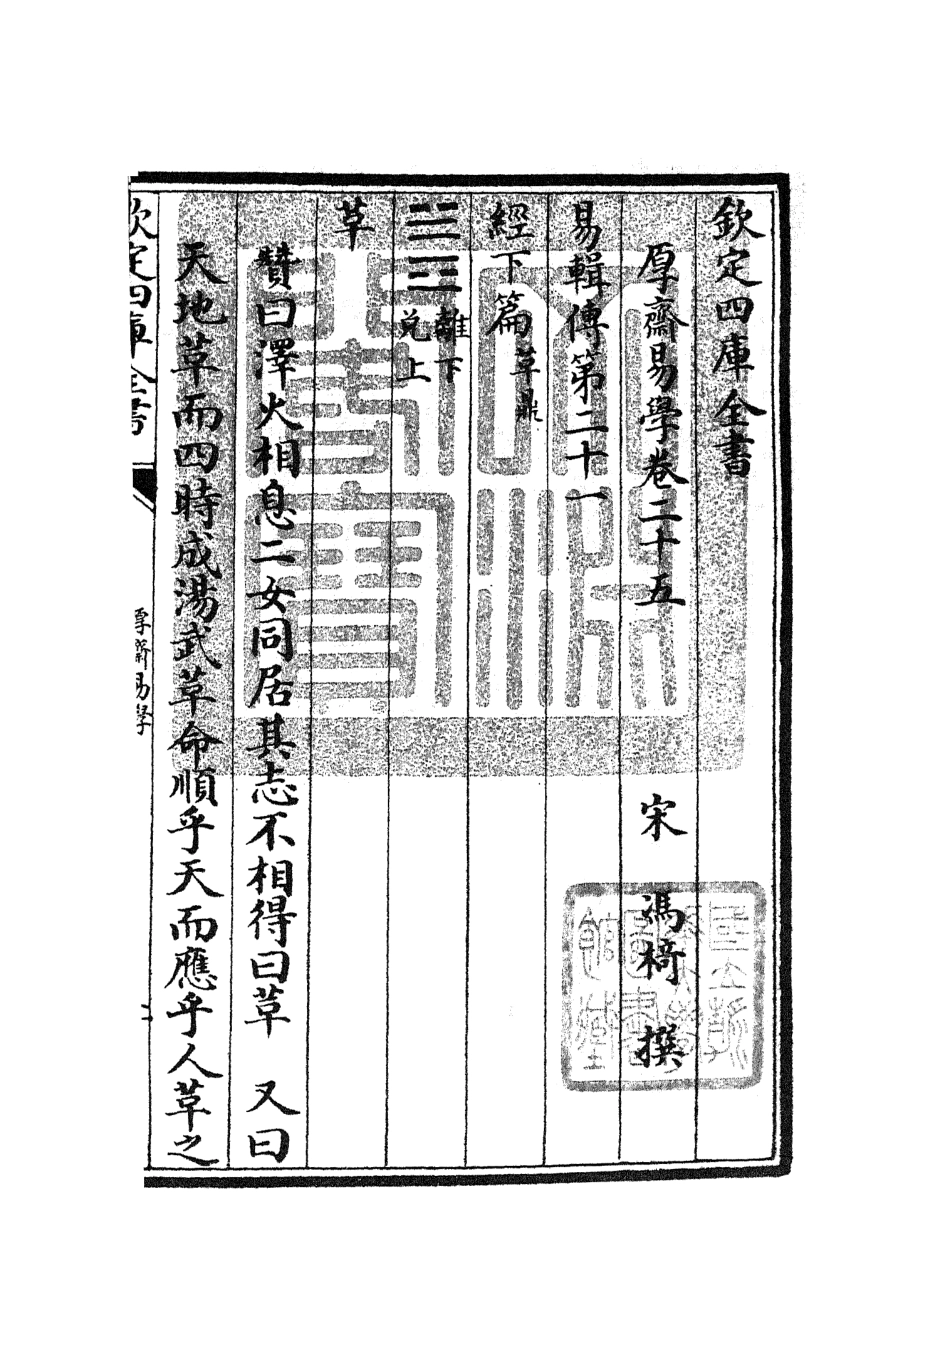 欽定四庫全書
厚齋易學卷二十五
宋 馮椅 撰
易輯傳第二十一
經下篇 革鼎
䷰ 離下 兌上
革
贊曰澤火相息二女同居其志不相得曰革 又曰
天地革而四時成湯武革命順乎天而應乎人革之
欽定四庫全書
厚齋易學